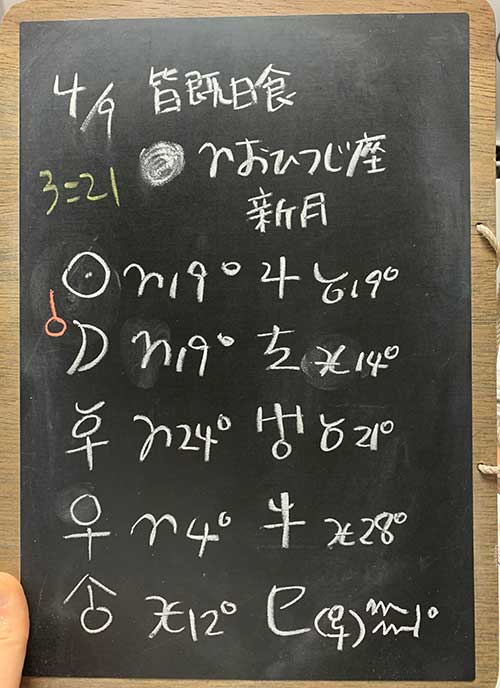 4/9 皆既日食
♈おひつじ座
3=21
新月
☉♈19° ♃♉19°
☽♈19° ♄♓14°
☿♈24° ♅♉21°
♀♈4° ♆♓28°
♂♓12° ♇(逆)♒1°